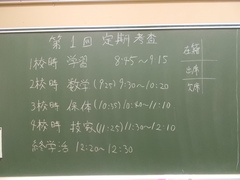 第1回 定期考査
1校時 学習 8:45~9:15
2校時 数学 (9:25) 9:30~10:20
3校時 保体 (10:35) 10:40~11:10
4校時 技家 (11:25) 11:30~12:10
終学活 12:20~12:30
在籍
出席
欠席